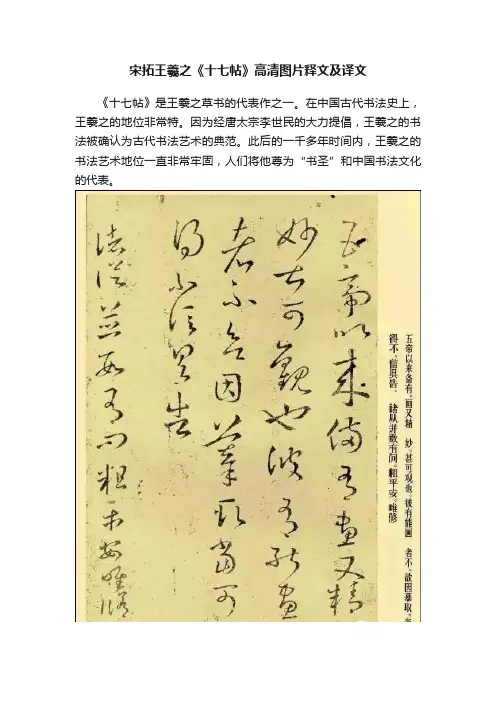 宋拓王羲之《十七帖》高清图片释文及译文
《十七帖》是王羲之草书的代表作之一。在中国古代书法史上，
王羲之的地位非常特。因为经唐太宗李世民的大力提倡，王羲之的书
法被确认为古代书法艺术的典范。此后的一千多年时间内，王羲之的
书法艺术地位一直非常牢固，人们将他尊为“书圣”和中国书法文化
的代表。
五帝以来备有,画又精 妙。甚可观也。彼有能画 者不。欲因摹取。
得不。信具告。 诸从并数有问。粗平安。唯修
五帝以來備有畫又精
妙甚可觀也彼有能畫
者不欲因摹取當可
得不信具告
諸從並數有問粗平安唯修